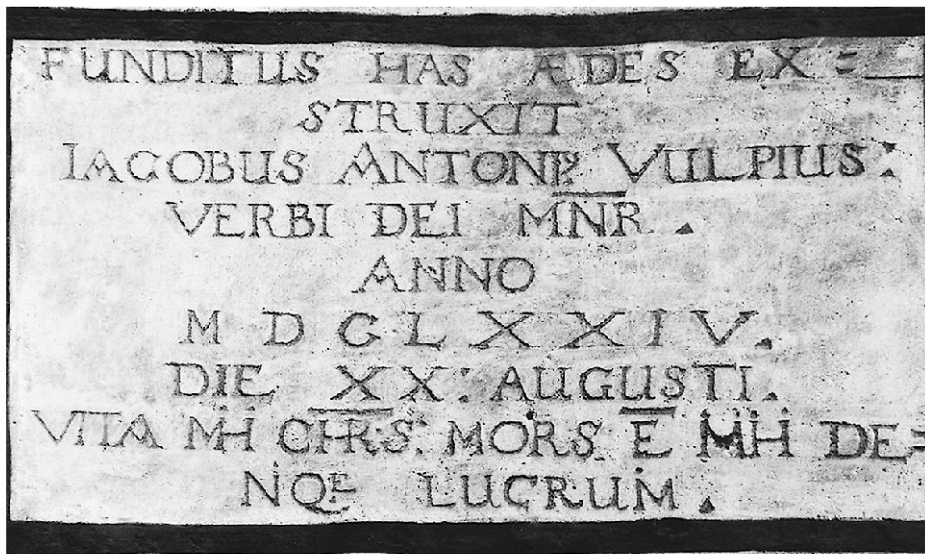 FUNDITUS HAS ÆDES EX=
STRUXIT
IACOBUS ANTONIꝰ VULPIUS:
VERBI DEI MNR.
ANNO
MDCLXXIV.
DIE XX: AUGUSTI.
VITA MH CHRS: MORS E MH DE=
NQE LUCRUM.